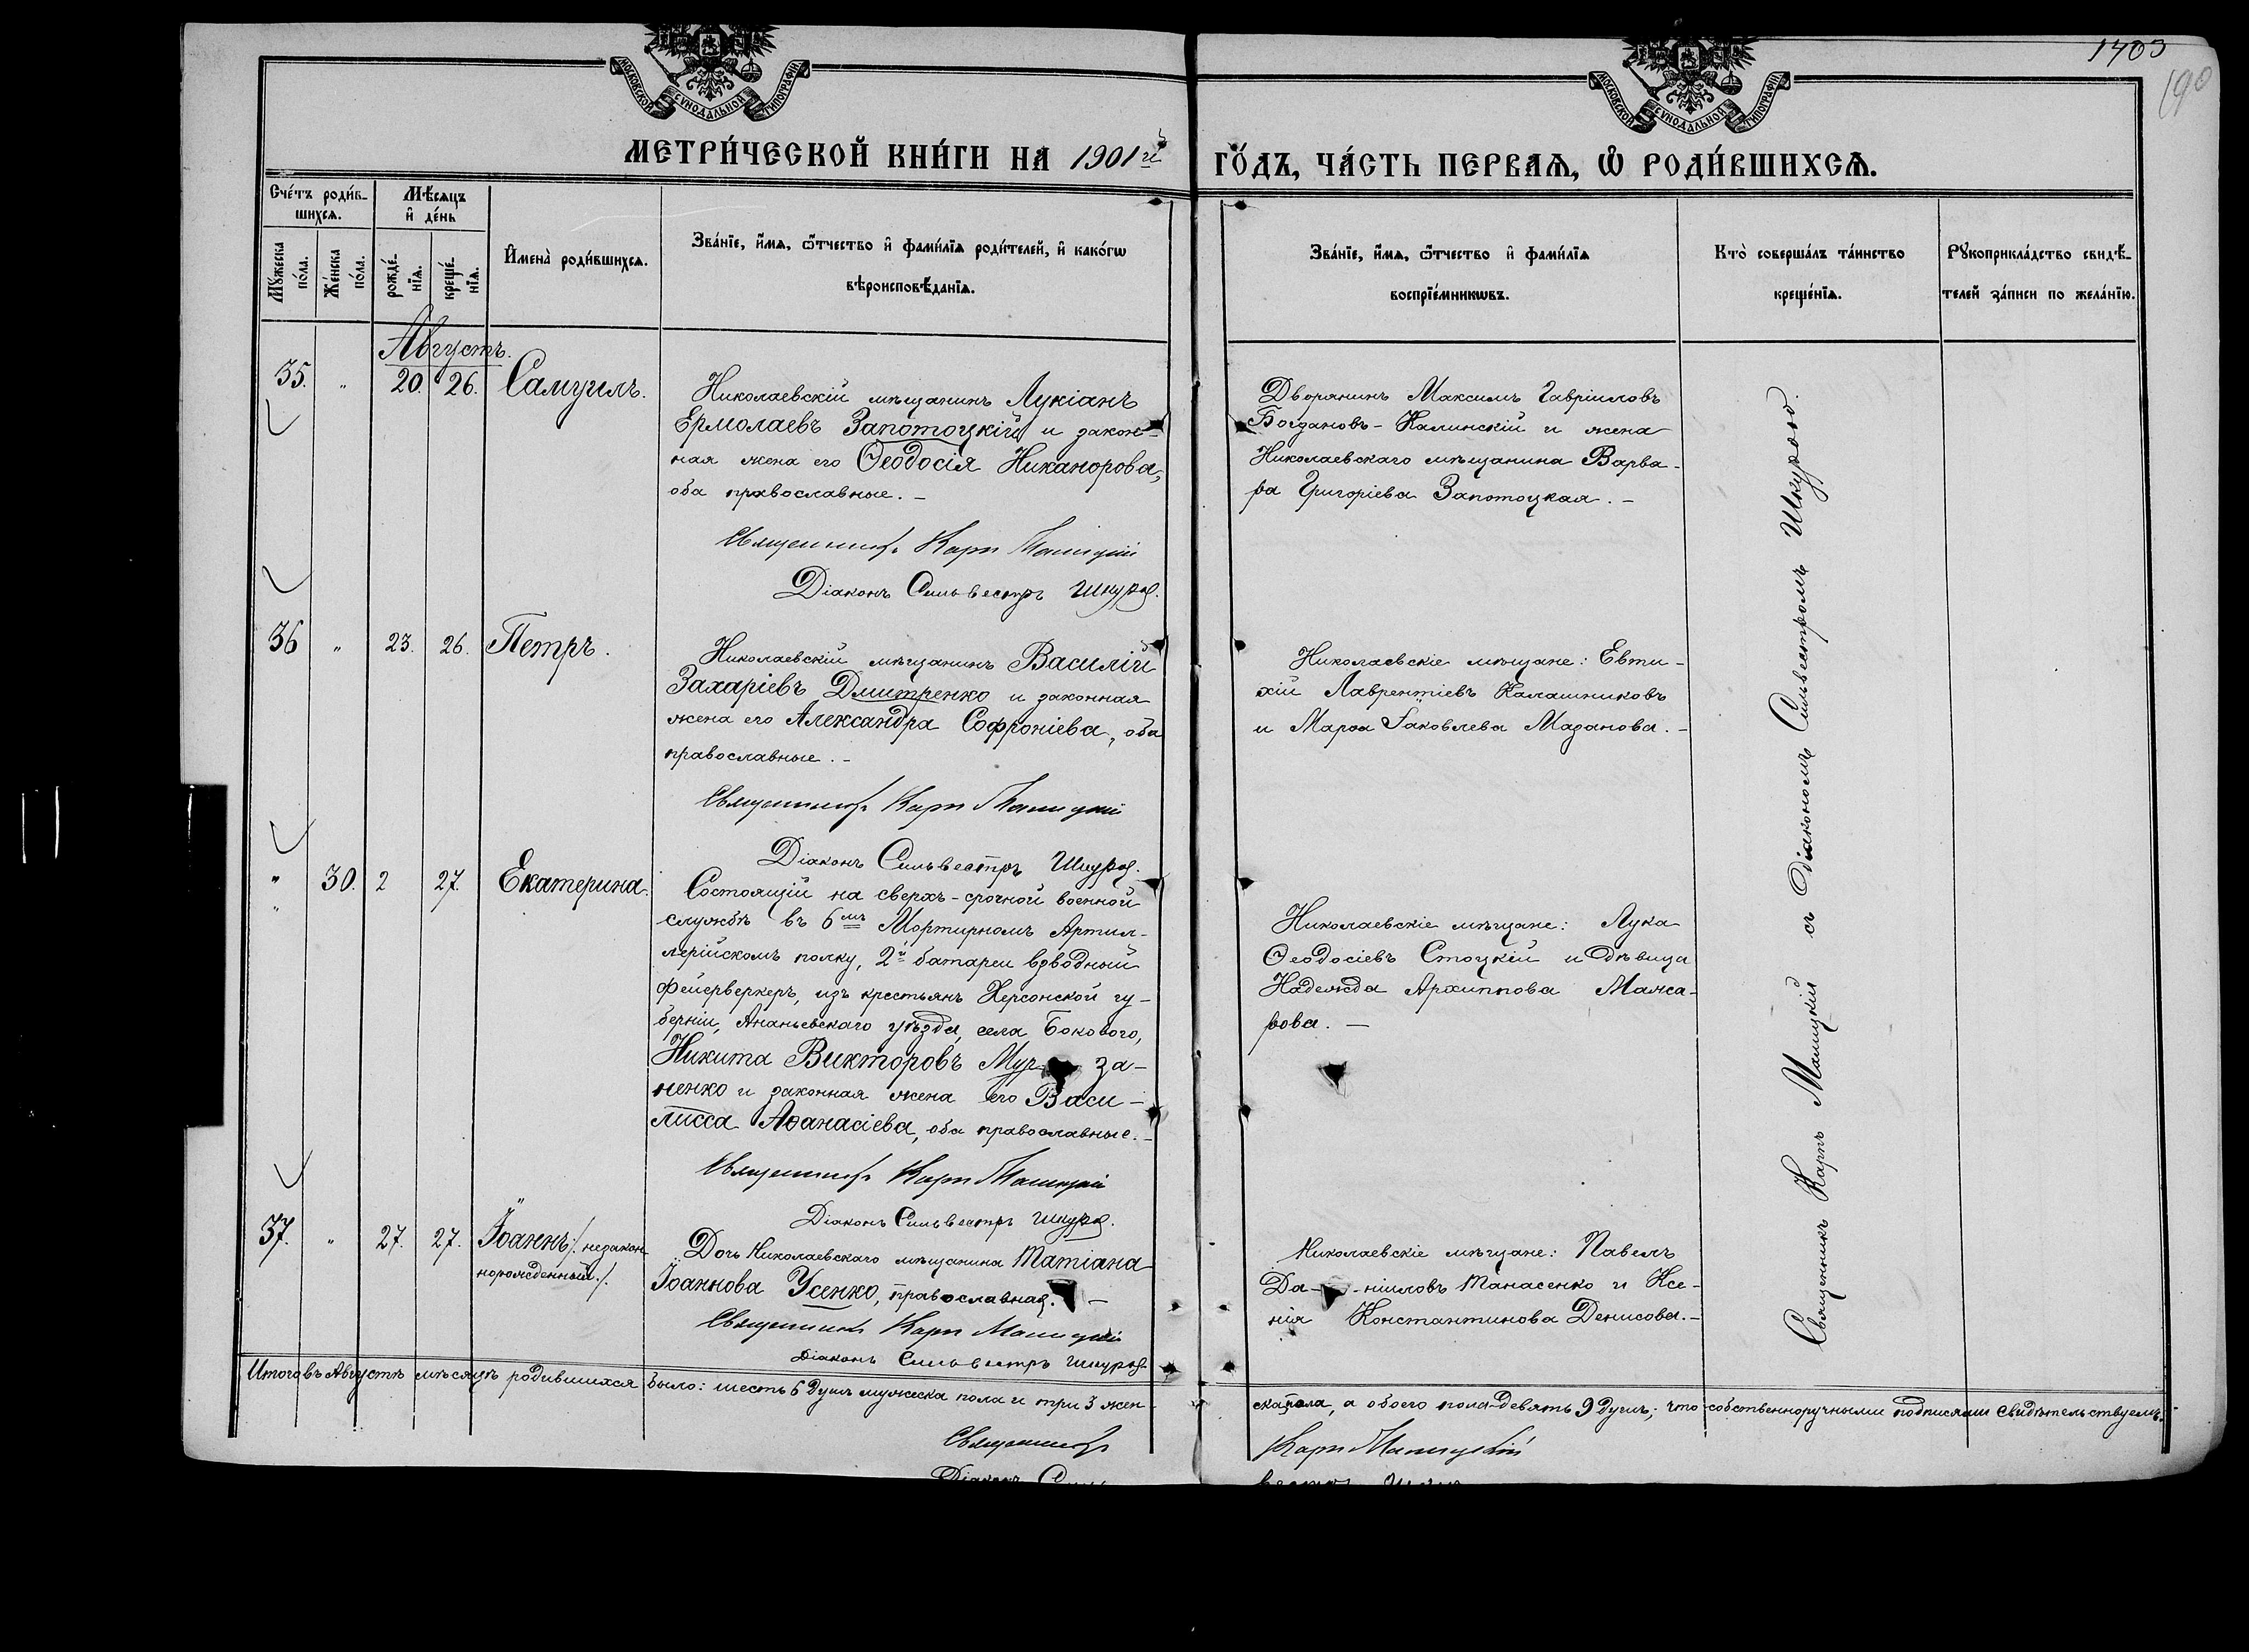 1403
190
МОСКОВСКОЙ СѴНОДАЛЬНОЙ ТИПОГРАФІИ
МОСКОВСКОЙ СѴНОДАЛЬНОЙ ТИПОГРАФІИ
МЕТРИ́ЧЕСКОЙ КНИ́ГИ НА 1901й ГО́ДЪ, ЧА́СТЬ ПЕРВАѦ, Ѡ РОДИ́ВШИХСѦ.
Сче́тъ роди́в-
шихсѧ.
Мꙋ́жеска
по́ла.
Же́нска
по́ла.
Мѣ́сѧцъ
и҆ де́нь
рожде́-
нїѧ.
креще́-
нїѧ.
И҆мена̀ роди́вшихсѧ.
Зва́нїе, и҆́мѧ, ѻ҆́тчество и҆ фами́лїѧ роди́телей, и҆ како́гѡ
вѣроисповѣ́данїѧ.
Зва́нїе, и҆́мѧ, ѻ҆́тчество и҆ фами́лїѧ
воспрїе́мникѡвъ.
Кто̀ соверша́лъ та́инство
креще́нїѧ.
Рꙋкоприкла́дство свидѣ́-
телей за́писи по жела́нїю.
Августъ.
35. " 20. 26. Самуилъ.
Николаевскій мѣщанинъ Лукіанъ
Ермолаевъ Запотоцкій и закон-
ная жена его Ѳеодосія Никанорова,
оба православные. –
Священникъ Карпъ
Діаконъ Сильвестръ Шкура.
Дворянинъ Максимъ Гавріиловъ
Богдановъ-Калинскій и жена
Николаевскаго мѣщанина Варва-
ра Григоріева Запотоцкая. –
36 " 23. 26. Петръ.
Николаевскій мѣщанинъ Василій
Захаріевъ Дмитренко и законная
жена его Александра Софроніева, оба
православные. –
Священникъ Карпъ
Діаконъ Сильвестръ Шкура.
Николаевскіе мѣщане: Евти-
хій Лаврентіевъ Калашниковъ
и Марѳа Іаковлева Мазанова. –
" 30. 2 27. Екатерина.
"
Состоящій на сверхъ-срочной военной
службѣ въ 6мъ Мортирномъ Артил-
лерійскомъ полку, 2й батареи взводный
фейерверкеръ, изъ крестьянъ Херсонской гу-
берніи, Ананьевскаго уѣзда, села Бокового,
Никита Викторовъ за-
ненко и законная жена его Васи-
лисса Аѳанасіева, оба православные. –
Священникъ Карпъ
Діаконъ Сильвестръ Шкура.
Николаевскіе мѣщане: Лука
Ѳеодосіевъ Стоцкій и дѣвица
Надежда Архиппова Мажа-
рова. –
37. " 27. 27. Іоаннъ /незакон-
норожденный./.
Дочь Николаевскаго мѣщанина Татіана
Іоаннова Усенко, православная. –
Священникъ Карпъ
Діаконъ Сильвестръ Шкура
Николаевскіе мѣщане: Павелъ
Да- -ніиловъ Танасенко и Ксе-
нія Константинова Денисова. –
Священникъ Карпъ съ Діакономъ Сильвестромъ Шкурою.
Итого въ Августѣ мѣсяцѣ родившихся было: шесть 6 душъ мужеска пола и три 3 жен-
ска пола, а обоего пола девять 9 душъ; что собственноручными подписями свидѣтельствуемъ.
Священникъ Карпъ
Діаконъ